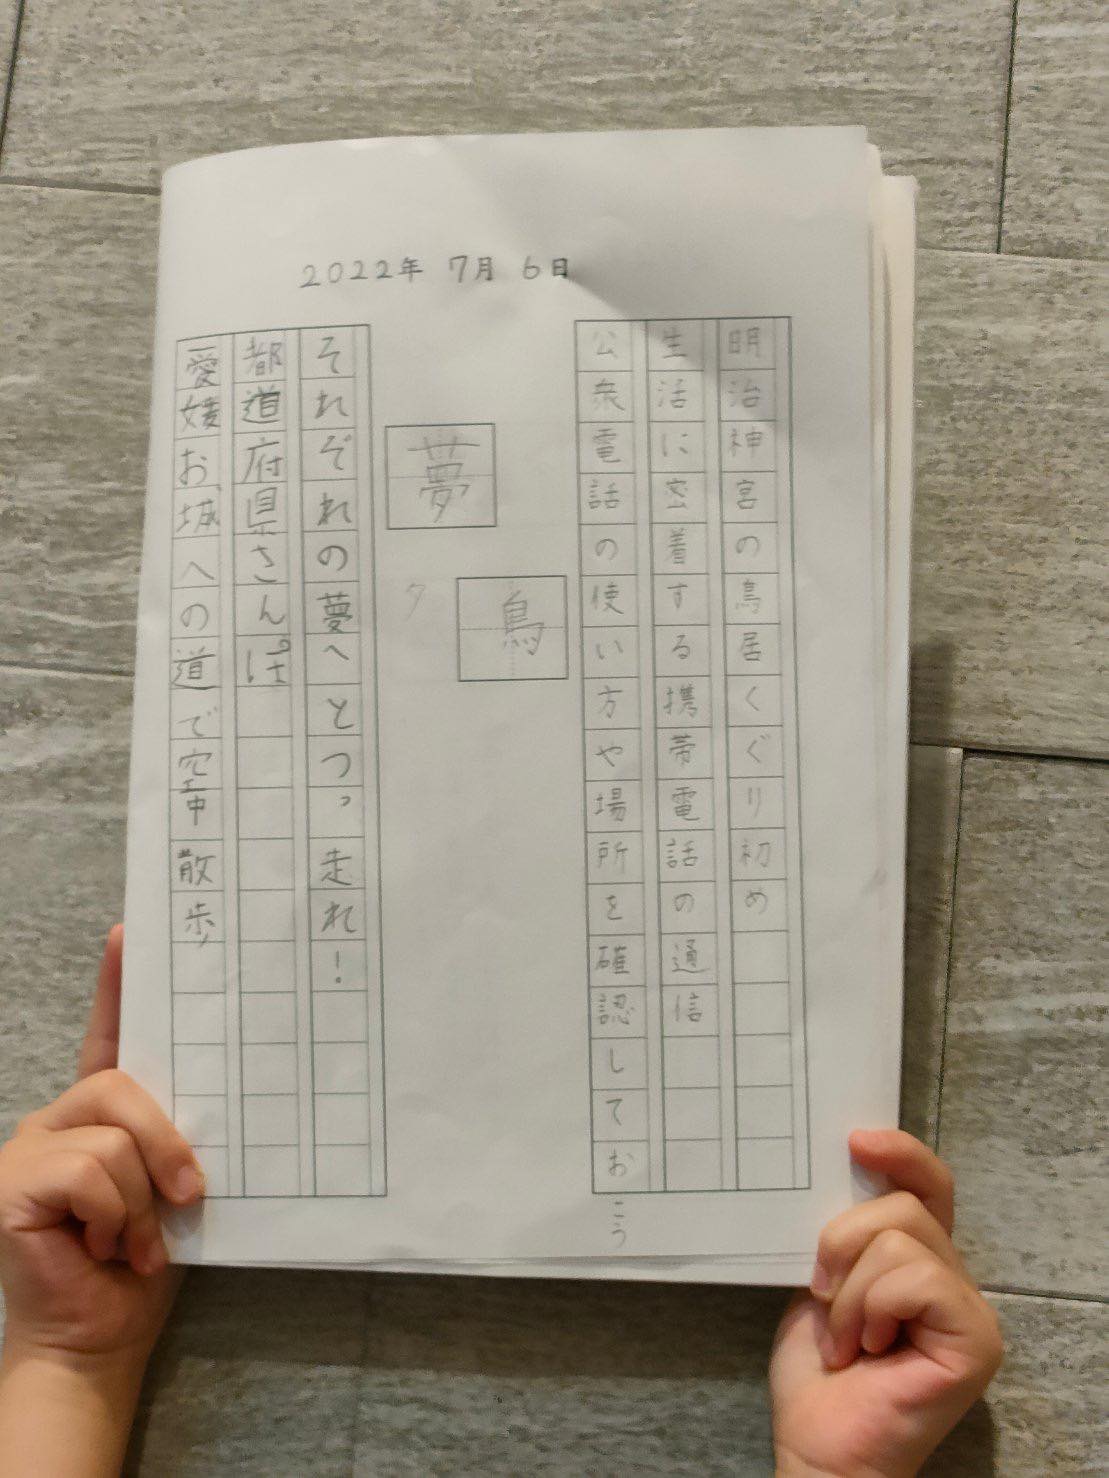 2022年 7月 6日
明治神宮の鳥居くぐり初め
生活に密着する携帯電話の通信
公衆電話の使い方や場所を確認しておこう
鳥
夢
タ
それぞれの夢へとつっ走れ!
都道府県さんぽ
愛媛お城への道で空中散歩